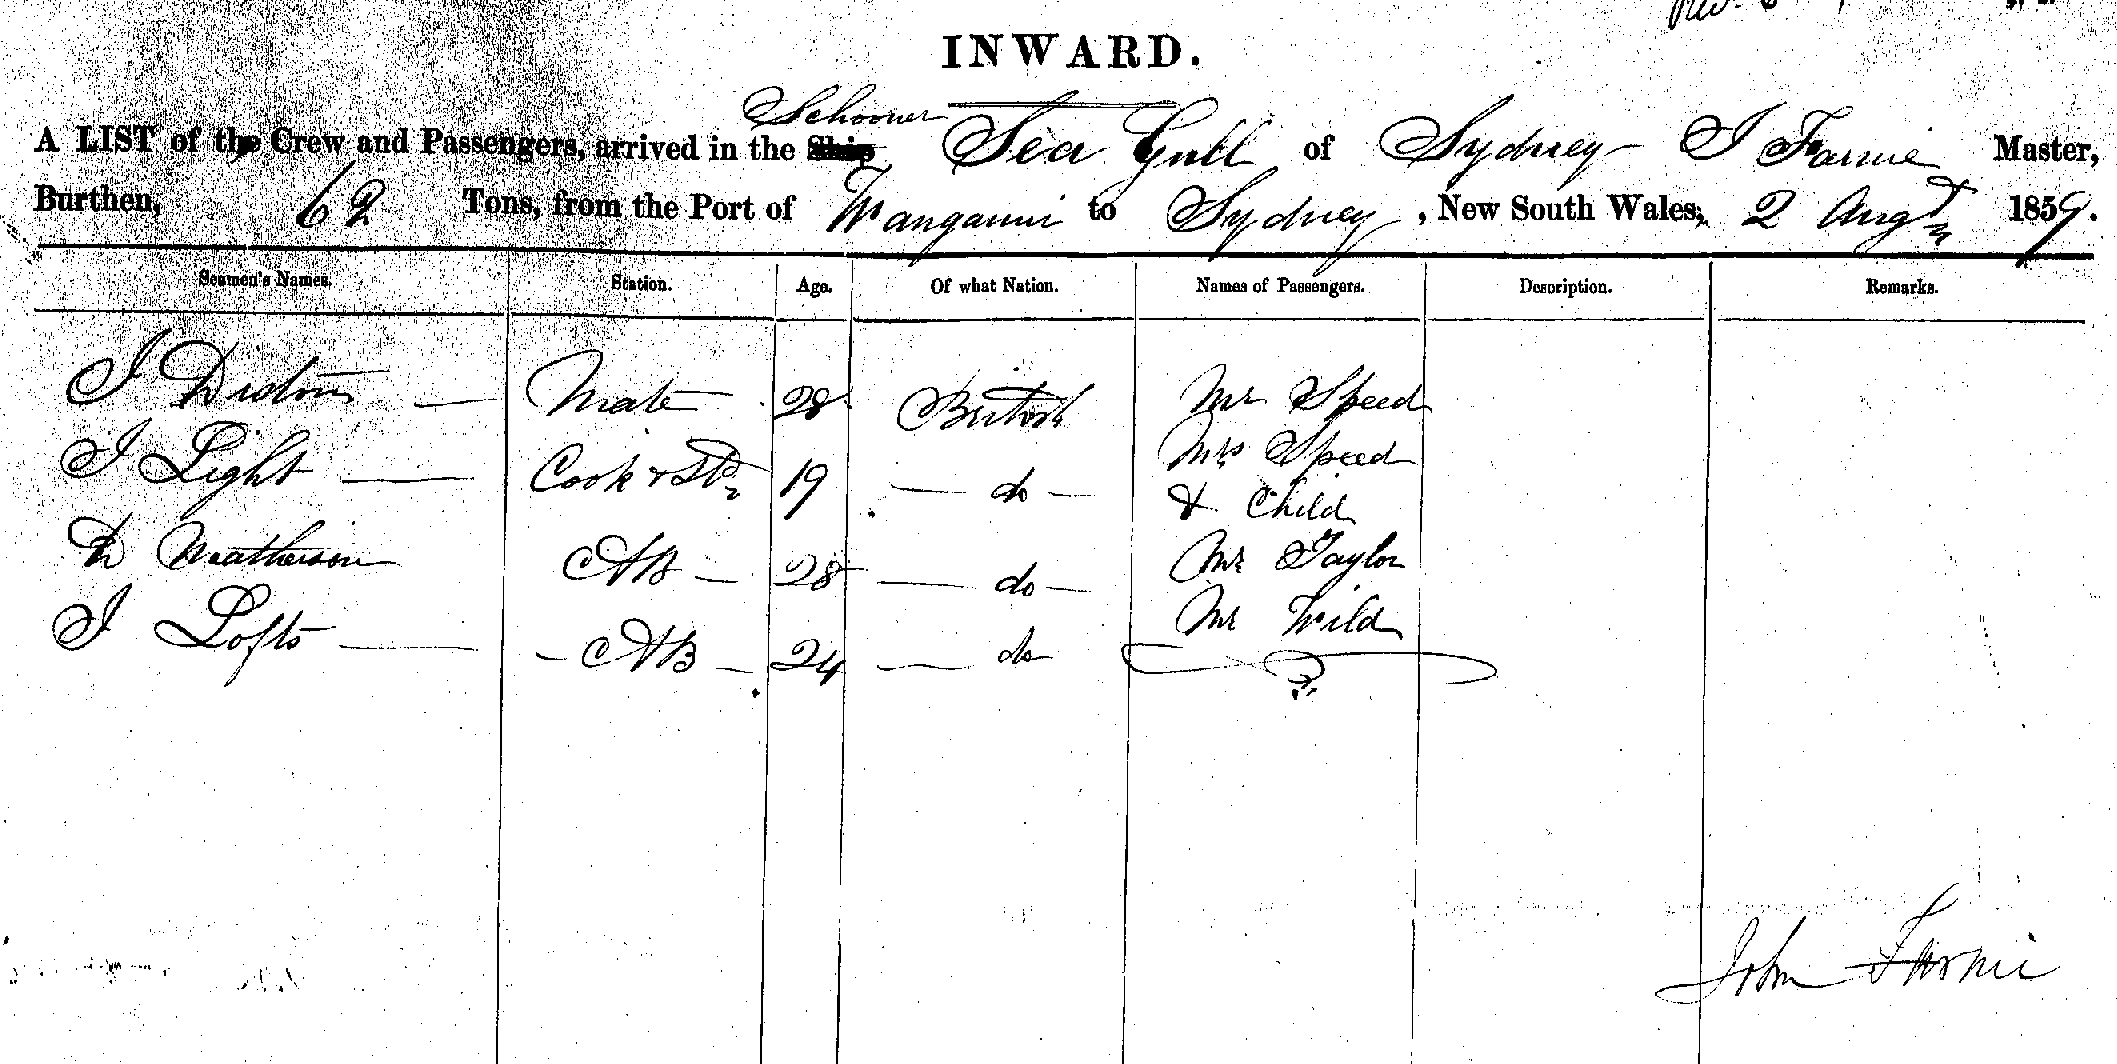 INWARD.
Schooner
A LIST of the Crew and Passengers, arrived in the Ship Sea Gull of Sydney J Farnie Master,
Burthen, 62 Tons, from the Port of Wanganui to Sydney, New South Wales, 2 Augt 1859.
Seamen's Names. Station. Age. Of what Nation. Names of Passengers. Description. Remarks.
J Mate 28 British Mr Speed
Mrs Speed
J Light Cook & Std 19 do & Child
D Matherson AB 28 do Mr Taylor
Mr Wild
J Lofts AB 24 do
John Farnie